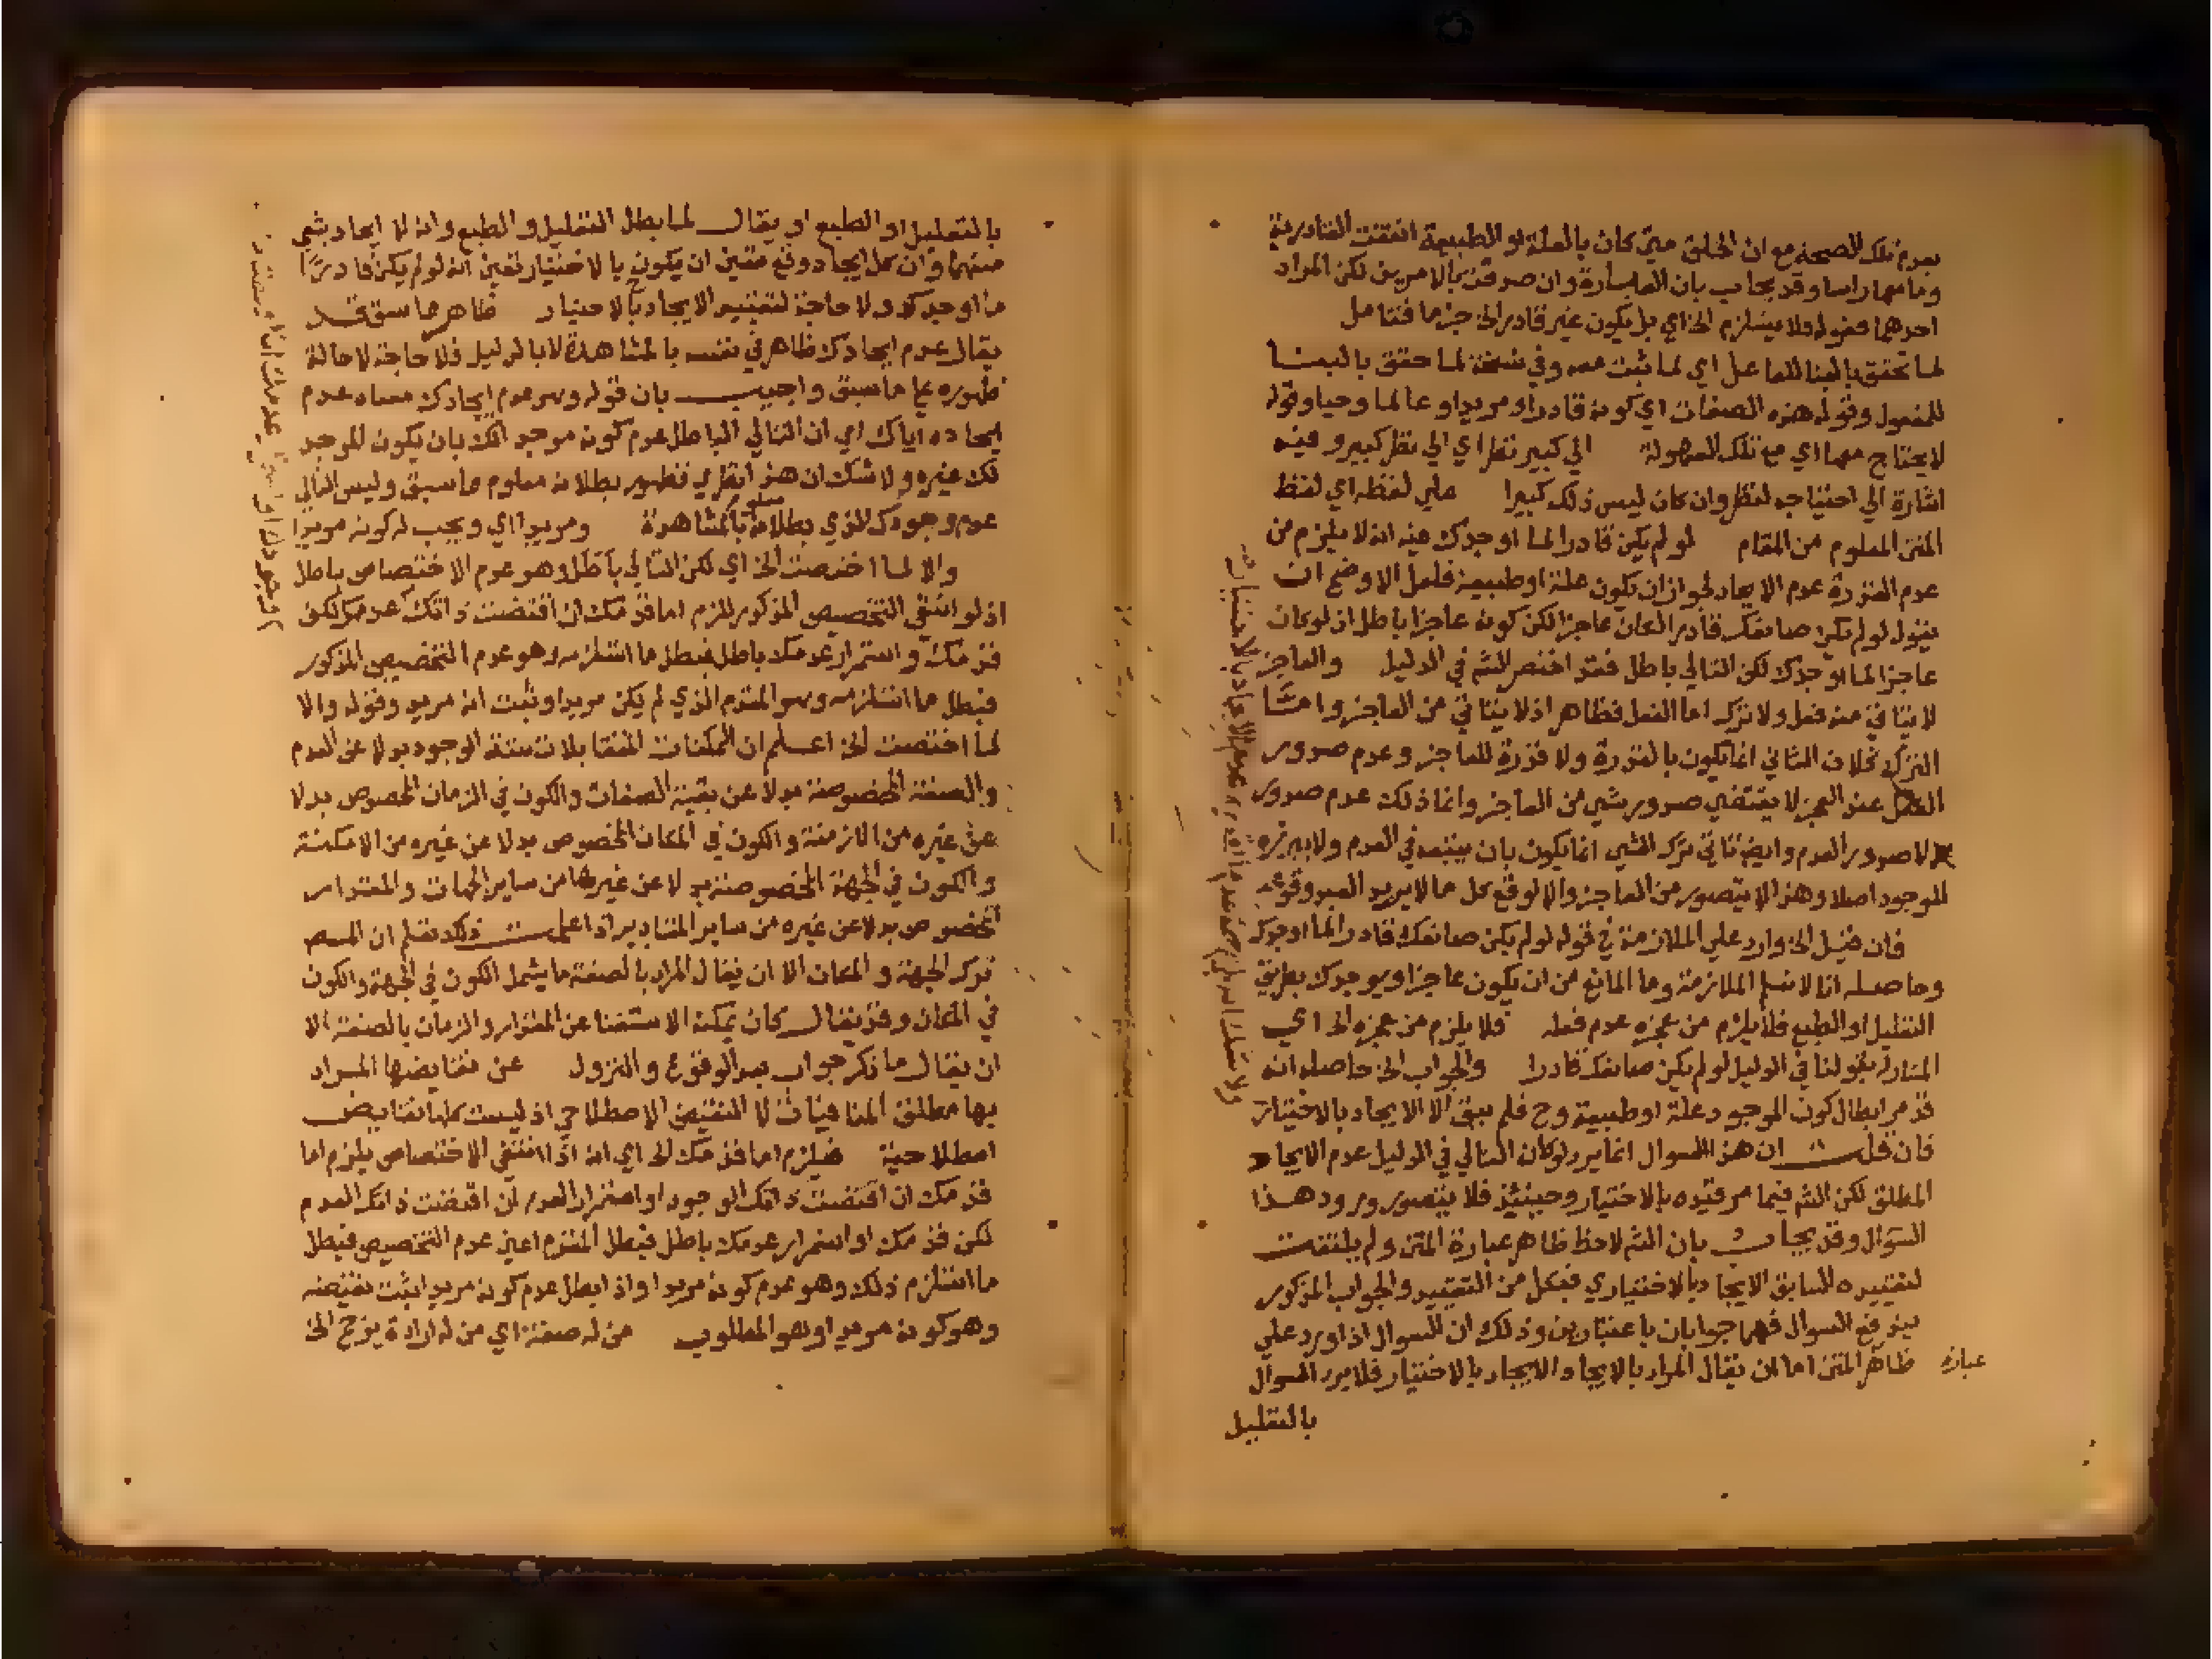 بعدم تلك الصحة مع ان الخلق متى كان بالعلة او الطبيعة انتفت القادرية
وما معها راسا وقد يجاب بان العبارة وان صدقت بالامرين لكن المراد
احدهما فقوله فلا يستلزم الخ اي بل يكون غير قادر الخ جزما فتامل
لما تحقق بالبنا للفاعل اي لما ثبت عنده وفي نسخة لما حقق بالبنا
للمفعول وقوله هذه الصفات اي كونه قادرا ومريدا وعالما وحيا وقوله
لا يحتاج معها اي مع تلك السهولة الي كبير نظر اي الي نظر كبير وفيه
اشارة الي احتياجه لنظر وان كان ليس ذلك كبيرا علي لفظه اي لفظ
المتن المعلوم من المقام لو لم يكن قادرا لما اوجدك فيه انه لا يلزم من
عدم القدرة عدم الايجاد لجواز ان يكون علة او طبيعة فلعل الاوضح ان
يقول لو لم يكن صانعك قادرا لكان عاجزا لكن كونه عاجزا باطل اذ لو كان
عاجزا لما اوجدك لكن التالي باطل فقد اختصر الشم في الدليل والعاجز
لا يتاتي منه فعل ولا ترك اما الفعل فظاهر اذ لا يتاتي من العاجز واما
الترك فلان التاتي انما يكون بالقدرة ولا قدرة للعاجز وعدم صدور
الفعل عند العجز لا يقتضي صدور شي من العاجز وانما ذلك عدم صدور
لا صدور العدم وايضا تاتي ترك الشي انما يكون بان يبقيه في العدم ولا يبرزه
للوجود اصلا وهذا لا يتصور من العاجز والا لوقع كل ما لا يريد العبد وقوعه
فان قيل الخ وارد علي الملازمة في قوله لو لم يكن صانعك قادرا لما اوجدك
وحاصله انا لا نسلم الملازمة وما المانع من ان يكون عاجزا ويوجدك بطريق
التعليل او الطبع فلا يلزم من عجزه عدم فعله فلا يلزم من عجزه الخ اي
المشار له بقولنا في الدليل لو لم يكن صانعك قادرا والجواب الخ حاصله انه
قد مر ابطال كون الموجود علة او طبيعة وح فلم يبق الا الايجاد بالاختيار
فان قلت ان هذا السوال انما يرد لو كان التالي في الدليل عدم الايجاد
المطلق لكن الشم فيما مر قيده بالاختيار وحينئذ فلا يتصور ورود هذا
السوال وقد يجاب بان الشم لاحظ ظاهر عبارة المتن ولم يلتفت
لتقييده السابق الايجاد بالاختياري فبكل من التقييد والجواب المذكور
يندفع السوال فهما جوابان باعتبارين وذلك ان السوال اذا ورد علي
عبارة ظاهر المتن اما ان يقال المراد بالايجاد الايجاد بالاختيار فلا يرد السوال
بالتعليل
ولا شك
بالتعليل او الطبع او يقال لما بطل التعليل والطبع وانه لا ايجاد بشي
منهما وان كل ايجاد وقع تعين ان يكون بالاختيار تعين انه لو لم يكن قادرا
ما اوجدك ولا حاجة لتقييد الايجاد بالاختيار ظاهر مما سبق قد
يقال عدم ايجادك ظاهر في نفسه بالمشاهدة لا بالدليل فلا حاجة لاحالة
ظهوره علي ما سبق واجيب بان قوله وهو عدم ايجادك معناه عدم
ايجاده اياك اي ان التالي الباطل عدم كونه موجد لك بان يكون الموجد
لك غيره ولا شك ان هذا نظري فظهور بطلانه معلوم مما سبق وليس التالي
عدم وجودك الذي بطلانه معلوم بالمشاهدة ومريدا اي ويجب له كونه مريدا
والا لما اختصت الخ اي لكن التالي باطل وهو عدم الاختصاص باطل
اذ لو انتفي التخصيص المذكور للزم اما قدمك ان اقتضت ذاتك عدمك لكن
قدمك واستمرار عدمك باطل فبطل ما استلزمه وهو عدم التخصيص المذكور
فبطل ما استلزمه وهو المقدم الذي لم يكن مريدا وثبت انه مريد وقوله والا
لما اختصت الخ اعلم ان الممكنات المتقابلات ستة الوجود بدلا عن العدم
والصفة المخصوصة بدلا عن بقية الصفات والكون في الزمان المخصوص بدلا
عن غيره من الازمنة والكون في المكان المخصوص بدلا عن غيره من الامكنة
والكون في الجهة المخصوصة بدلا عن غيرها من ساير الجهات والمقدار
المخصوص بدلا عن غيره من ساير المقادير اذا علمت ذلك تعلم ان المص
ترك الجهة والمكان الا ان يقال المراد بالصفة ما يشمل الكون في الجهة والكون
في المكان وقد يقال كان يمكنه الاستغنا عن المقدار والزمان بالصفة الا
ان يقال ما ذكر جواب بعد الوقوع والنزول عن نقايضها المراد
بها مطلق المنافيات لا النقيض الاصطلاحي اذ ليست كلها نقايض
اصطلاحية فيلزم اما قدمك الخ اي انه اذا انتفي الاختصاص يلزم اما
قدمك ان اقتضت ذاتك الوجود او استمرار العدم ان اقتضت ذاتك العدم
لكن قدمك او استمرار عدمك باطل فبطل الملزم اعني عدم التخصيص فبطل
ما استلزم ذلك وهو عدم كونه مريدا واذا بطل عدم كونه مريدا ثبت نقيضه
وهو كونه مريدا وهو المطلوب من له صفة اي من له ارادة يرجح الخ